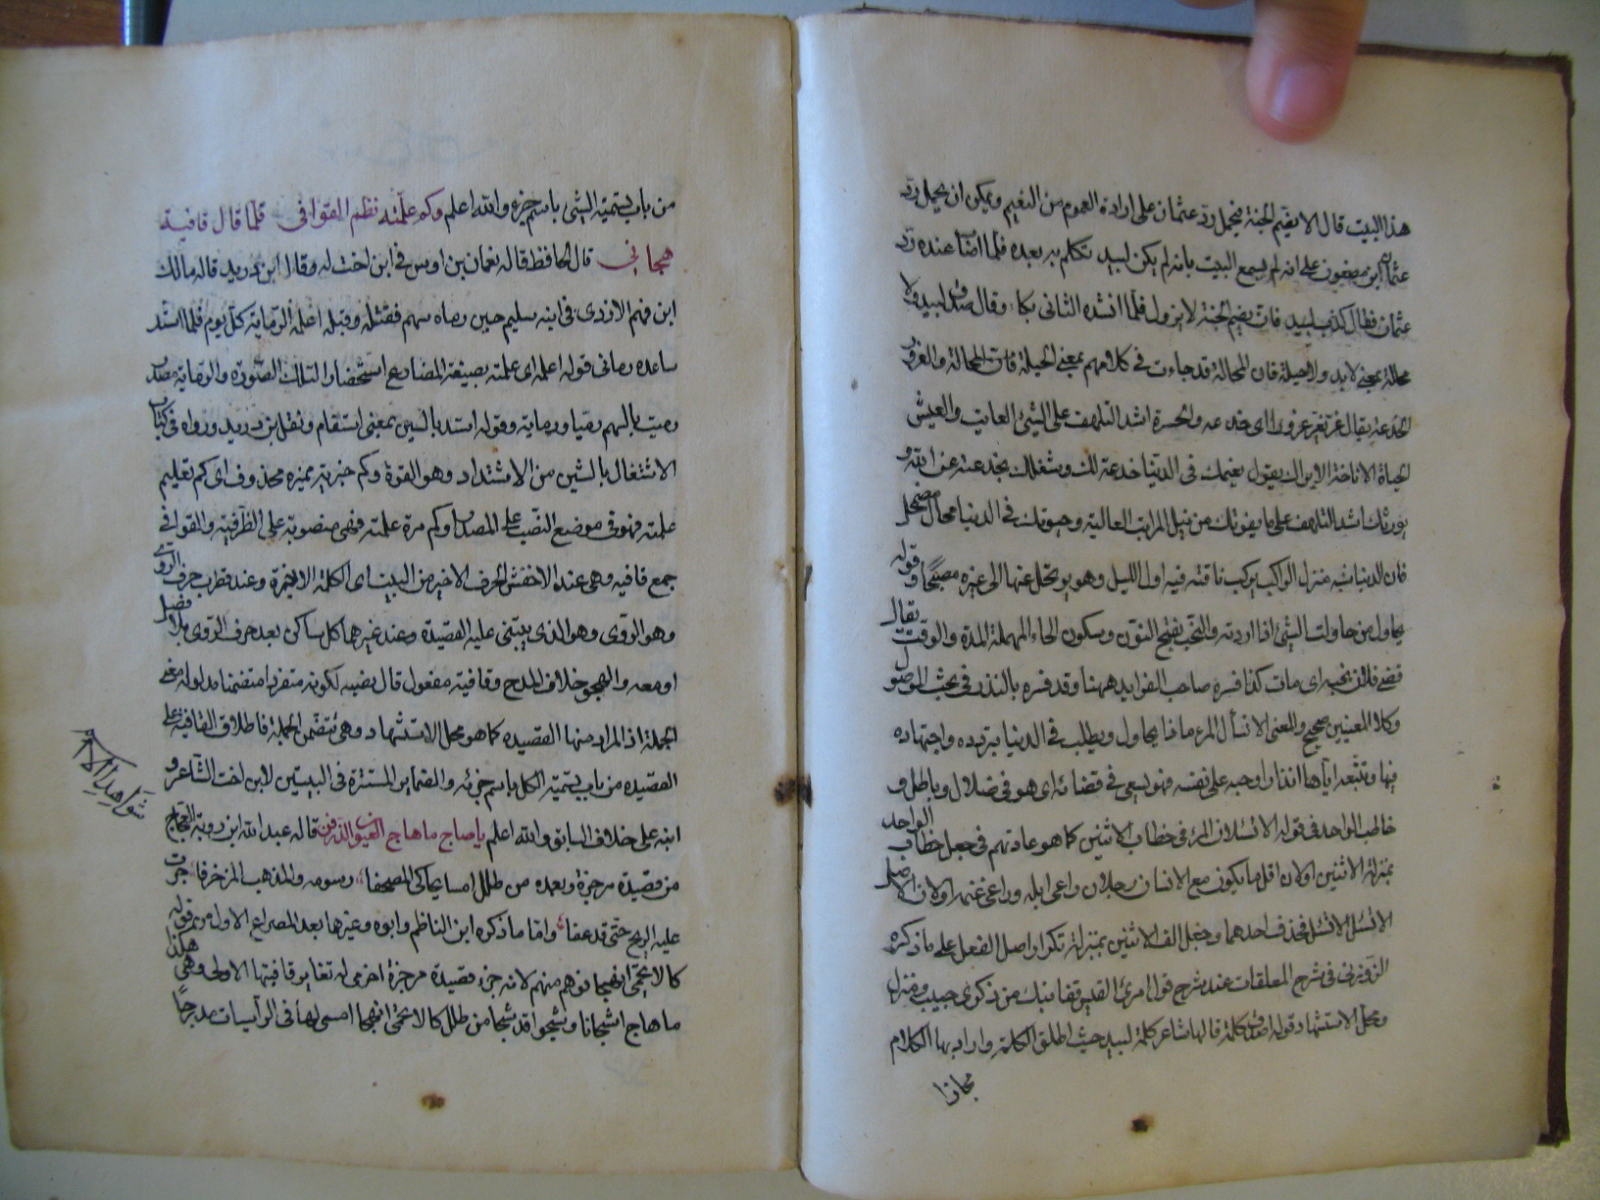 هذا البيت قال الا نعيم الجنة فيحمل رد عثمان على ارادة العموم من النعيم ويمكن ان يحمل رد
عثمان ابن مظعون على انه لم يسمع البيت بانه لم يكن لبيد تكلم به بعده فلما اضاف عنده رد
عثمان فقال كذب لبيد فان نعيم الجنة لا يزول فلما انشده الثانى وقال صدق لبيد ولا
محالة بمعنى لا بد ولا حيلة فان المحالة قد جاءت فى كلامهم بمعنى الحيلة والغرور
الخدعة يقال غر يغر غرورا اى خدعه والحسرة اشد التلهف على الشئ الفايت والعيش
الحياة يقول نعيمك فى الدنيا خدعة لك وشغلك بخدعته عن الله
يورثك اشد التلهف على ما يفوتك من نيل المراتب العالية وحيوتك فى الدنيا محال مضمحل
فان الدنيا شبه منزل الراكب يركب ناقته فيه اول الليل وهو يرتحل عنها الى غيره مصبحا وقوله
يحاول من حاولت الشئ اذا اردته والنحب بفتح النون وسكون الحاء المهملة المدة والوقت يقال
قضى فلان نحبه اى مات كذا فسره صاحب الفرايد ههنا وقد فسره بالنذر فى بحث الموصول
وكلا المعنيين صحيح والمعنى الا تسأل المرء ماذا يحاول ويطلب فى الدنيا بتردده واجتهاده
فيها وتتبعه اياها انذر اوجبه على نفسه فهو يسعى فى قضائه اى هو فى ضلال وباطل و
خاطب الواحد فى قوله الا تسئلان المرء فى خطاب الاثنين كما هو عادتهم فى جعل خطاب الواحد
بمنزلة الاثنين اولان اقل ما يكون مع الانسان رجلان راعى ابله وراعى غنمه اولان الاصل
الا تسئل الا تسئل فحذف احدهما وجعل الف الاثنين بمنزلة تكرار اصل الفعل على ما ذكره
الزوزنى فى شرح المعلقات عند شرح قول امرئ القيس قفا نبك من ذكرى حبيب ومنزل
ومحل الاستشهاد قوله اصدق كلمة قالها شاعر كلمة لبيد حيث اطلق الكلمة واراد بها الكلام
مجازا
من باب تسمية الشئ باسم جزءه والله اعلم وكم علمته نظم القوافى فلما قال قافية
هجانى قال الحافظ قاله نعمان بن اوس فى ابن اخت له وقال ابن دريد قاله مالك
ابن فهم الازدى فى ابنه سليم حين رماه بسهم فقتله وقبله اعلمه الرماية كل يوم فلما استد
ساعده رمانى قوله اعلمه اى علمته بصيغة المضارع استحضارا لتلك الصورة والرماية مصدر
رميت بالسهم رميا ورماية وقوله استد بالسين بمعنى استقام ونقل ابن دريد ورواه فى كتاب
الاشتغال بالشين من الاشتداد وهو القوة وكم خبرية مميزه محذوف اى كم تعليم
علمته فهو فى موضع النصب على المصدر او كم مرة علمته فهى منصوبة على الظرفية والقوافى
جمع قافيه وهى عند الاخفش الحرف الاخير من البيت اى الكلمة الاخيرة وعند قطرب حرف الروى
وهو الروى وهو الذى يبتنى عليه القصيدة وعند غيرهما كل ساكن بعد حرف الروى بلا فصل
او معه والهجو خلاف المدح وقافية مفعول قال نصبه لكونه متفردا متضمنا مدلوله معنى
الجملة اذ المراد منها القصيده كما هو محل الاستشهاد وهى تتضمن الجملة فاطلاق القافية على
القصيده من باب تسمية الكل باسم جزئه والضماير المستترة فى البيتين لابن اخت الشاعر و
شواهد الكلام
ابنه على خلاف السابق والله اعلم يا صاح ما هاج العيون الذرفن قاله عبد الله ابن روبة العجاج
من قصيدة مرجزة وبعده من طلل امسى يحاكى المصحفا رسومه والمذهب المزخرفا جرت
عليه الريح حتى قد عفا واما ما ذكره ابن الناظم وابوه وغيرها بعد المصراع الاول من قوله
كالاتحمى انهجا فوهم منهم لانه جزء قصيدة مرجزة اخرى له تغاير قافيتها الاولى وهى هكذا
ما هاج اشجانا وشجوا قد شجا من طلل كالاتحمى انهجا امسى لعافى الرامسات مدرجا